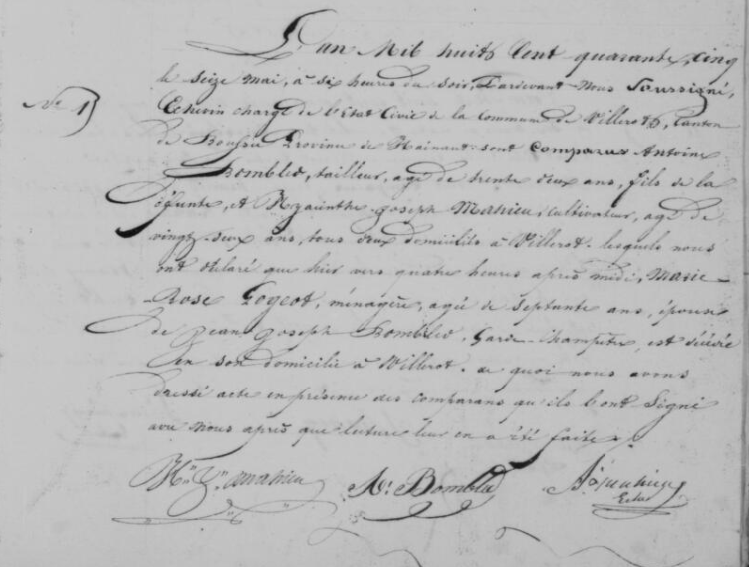 L'an Mil huit Cent quarante, cinq
le seize mai, à six heures du soir, Pardevant Nous Soussigné,
N° 
Echevin chargé de l'Etat Civil de la Commune de Villerot, Canton
de Province de Hainaut sont Comparus Antoine
Bombled, tailleur, agé de trente deux ans, fils de la
défunte, et Hyacinthe Joseph Mahieu, cultivateur, agé de
vingt deux ans, tous deux domiciliés à Villerot. lesquels nous
ont déclaré que hier vers quatre heures après midi, Marie
Rose ménagère, agée de septante ans, épouse
de Jean Joseph Bombled, Garde-Champêtre, est décédée
en son domicile à Villerot. de quoi nous avons
dressé acte en présence des comparans qu'ils l'ont Signé
avec Nous après que lecture leur en a été faite.
Mahieu At Bombled